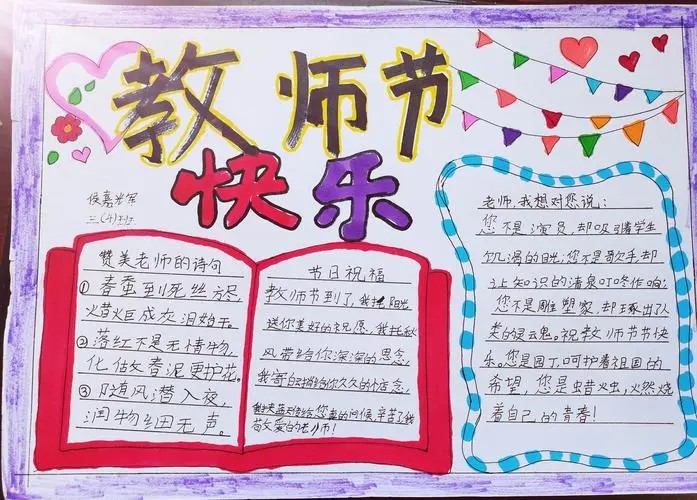 教师节
快乐
侯嘉光军
三(4)班
赞美老师的诗句
①春蚕到死丝方尽,
火昔火巨成灰泪始干。
②落红不是无情物,
化作春泥更护花。
③随风潜入夜,
润物细无声。
节日祝福
教师节到了,我托阳光
送你美好的祝愿,我托秋
风带给你深深的思念,
我寄白云捎给你久久的惦念,
给您真的问候,辛苦了我
敬爱的老师!
老师,我想对您说:
您不是演员,却吸引着学生
饥渴的目光;您不是歌手,却
让知识的清泉叮咚作响;
您不是雕塑家,却琢出了人
类的灵魂。祝教师节节快
乐。您是园丁,呵护着祖国的
希望,您是蜡烛,火然烧
着自己的青春!